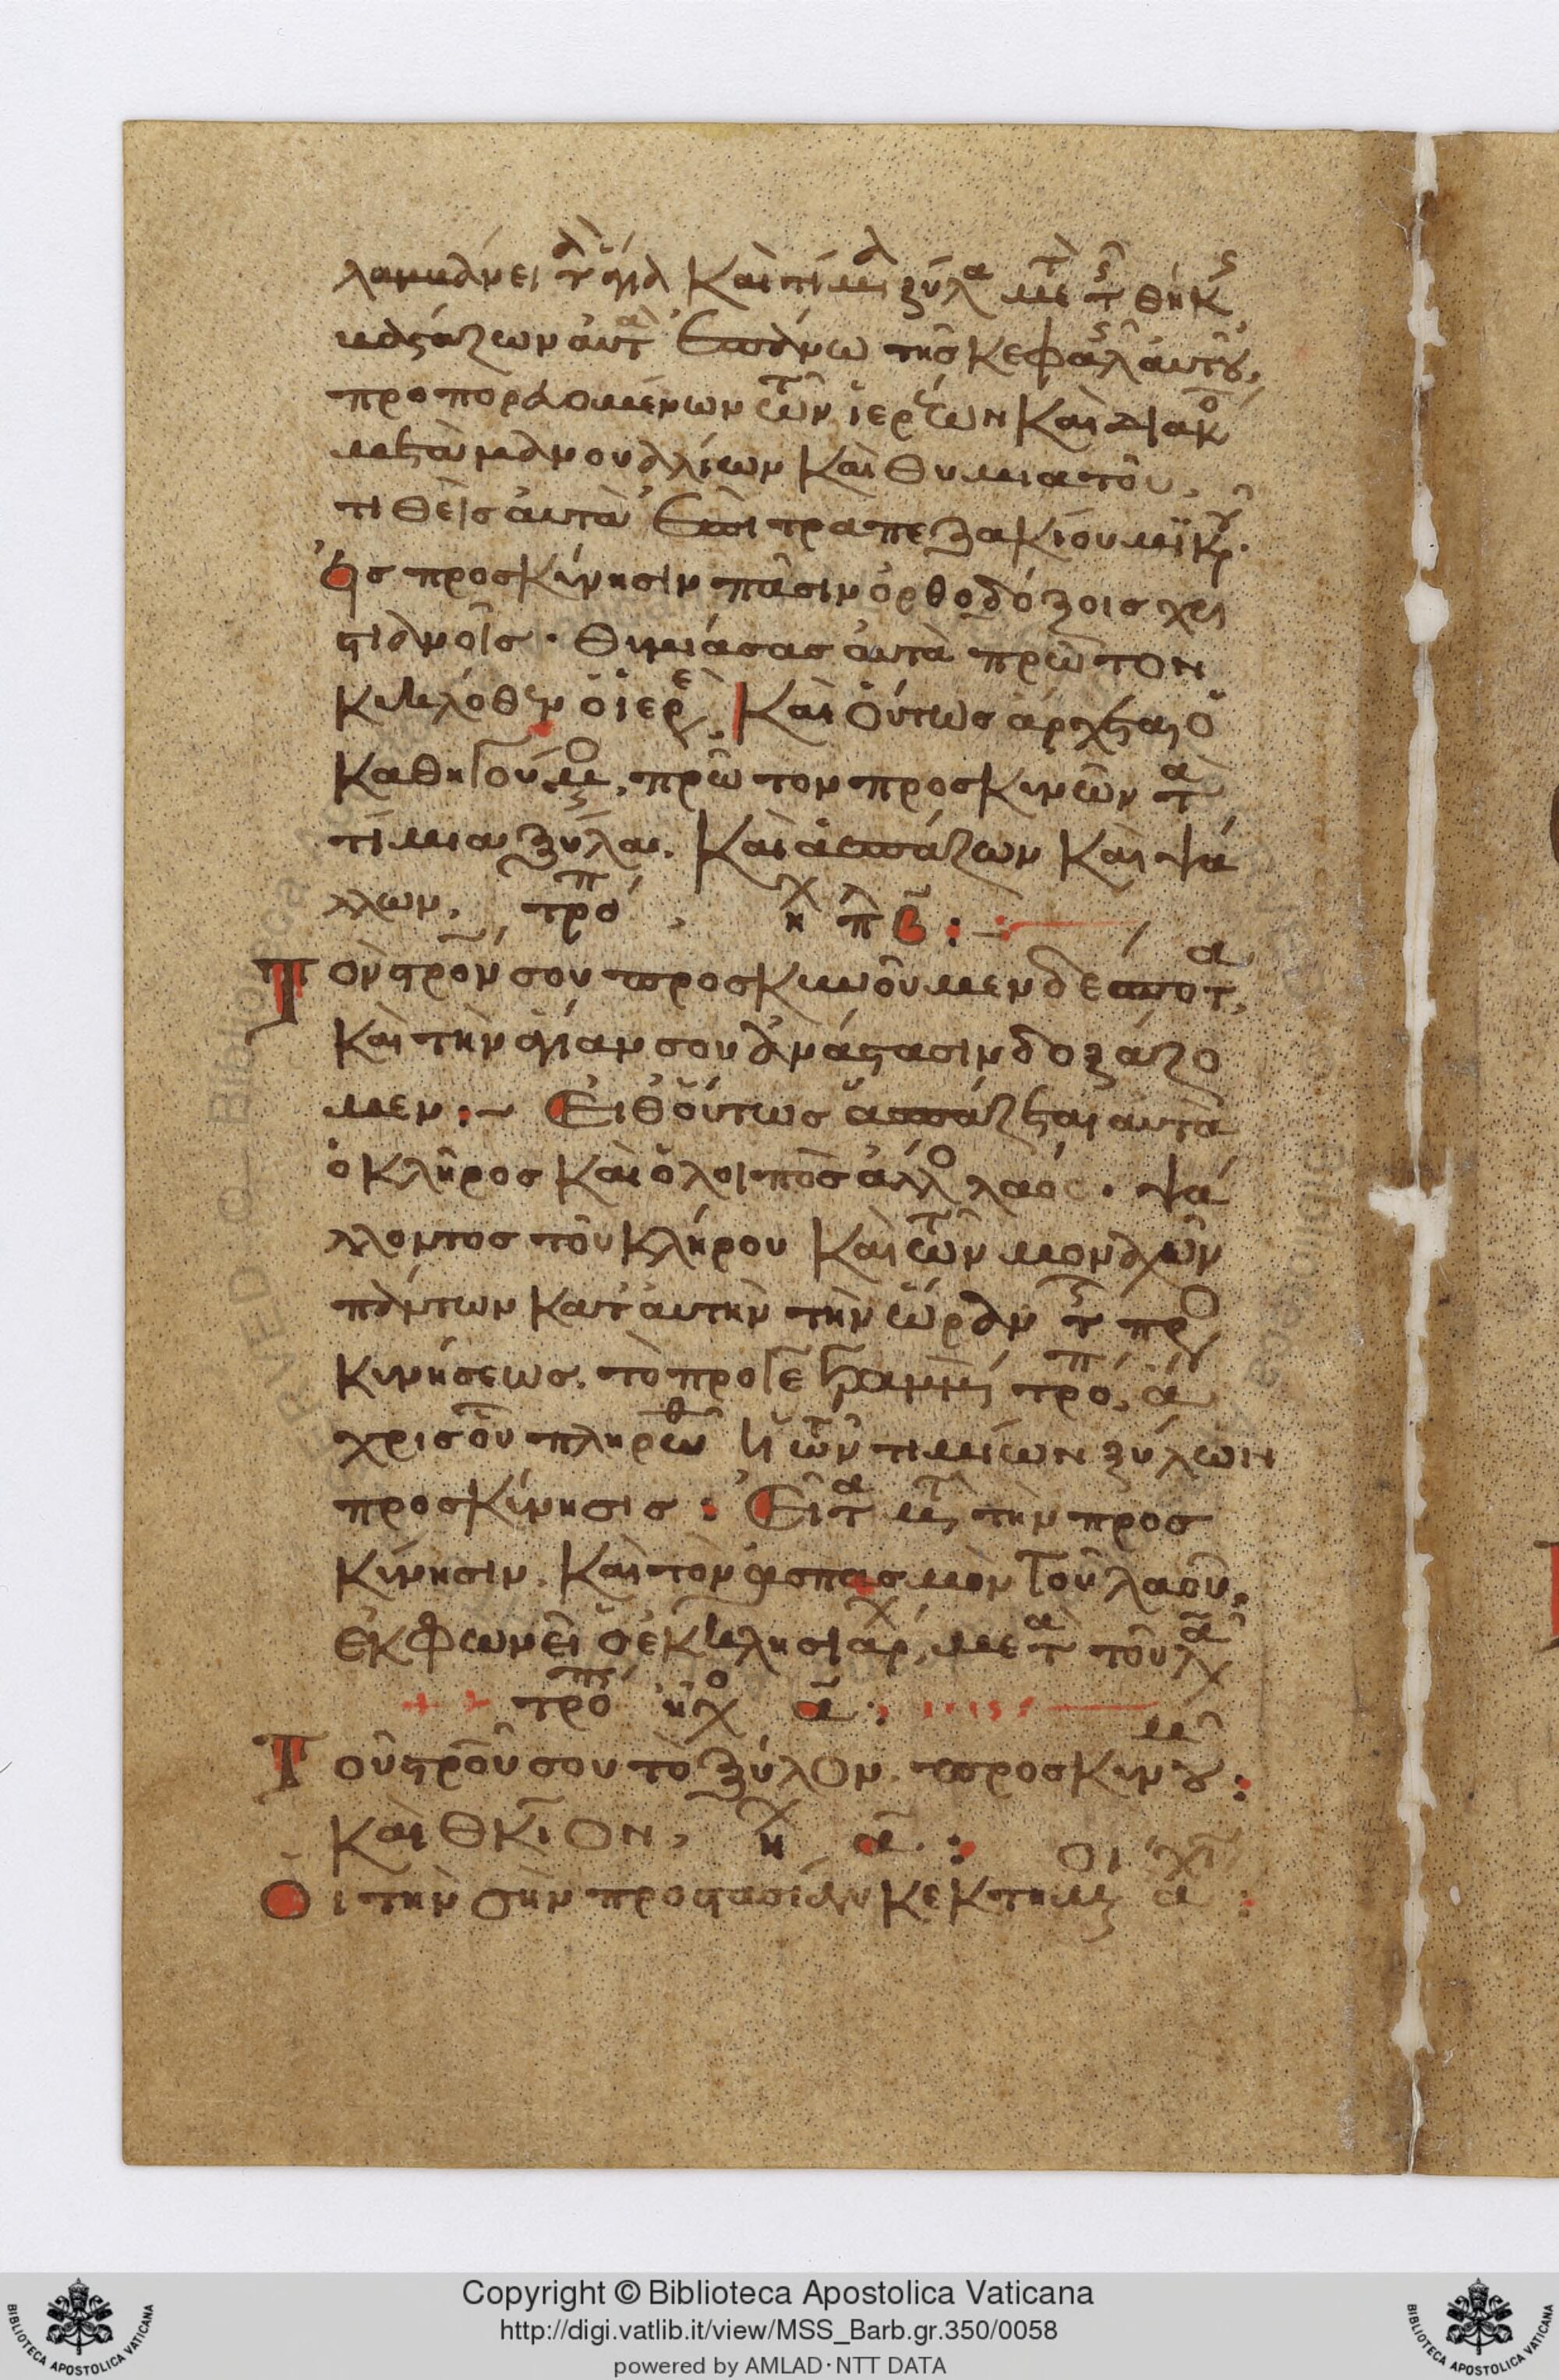 λαμβάνει τὰ ἅγια καὶ τίμια ξύλα μετὰ τῆς θήκης
βαστάζων αὐτὰ ἐπάνω τῆς κεφαλῆς αὐτοῦ,
προπορευομένων τῶν ἱερέων καὶ διακό
μετὰ μανουαλίων καὶ θυμιατοῦ.
τιθεὶς αὐτὰ ἐπὶ τραπεζακίου μικροῦ.
εἰς προσκύνησιν πᾶσιν ὀρθοδόξοις χρι
στιανοῖς. θυμιάσας αὐτὰ πρῶτον
κυκλόθεν ὁ ἱερεὺς. Καὶ οὕτως ἄρχεται ὁ
καθηγούμενος, πρῶτον προσκυνῶν τὰ
τίμια ξύλα. καὶ ἀσπάζων καὶ ψά
λλων. τροπ. ἦχ πλ β :
Τὸν στρόν σου προσκυνοῦμεν δέσποτα,
καὶ τὴν ἁγίαν σου ἀνάστασιν δοξάζο
μεν :~ Εἶθ' οὕτως ἀσπάζεται αὐτὰ
ὁ κλῆρος καὶ ὁ λοιπὸς ἄλλος λαός. ψά
λλοντος τοῦ κλήρου καὶ τῶν μοναχῶν
πάντων κατ' αὐτὴν τὴν ὥραν τῆς προσ
κυνήσεως. τὸ προγεγραμμένον τροπ,
χρισοῦ πληρωθῆ ἡ τῶν τιμίων ξύλων
προσκύνησις : Εἶτα μετὰ τὴν προσ
κύνησιν. καὶ τὸν ἀσπασμὸν τοῦ λαοῦ.
ἐκφωνεῖ ὁ ἐκκλησιάρχ, μετὰ τοῦ λαχ
τροπ ἦχο α :
Τοῦ στροῦ σου τὸ ξύλον. προσκυνοῦμεν :
Καὶ θκίον, ἦχ α. :
Οἱ τὴν σὴν προστασίαν κεκτημ α :
Copyright © Biblioteca Apostolica Vaticana
http://digi.vatlib.it/view/MSS_Barb.gr.350/0058
powered by AMLAD·NTT DATA
BIBLIOTECA APOSTOLICA VATICANA
BIBLIOTECA APOSTOLICA VATICANA